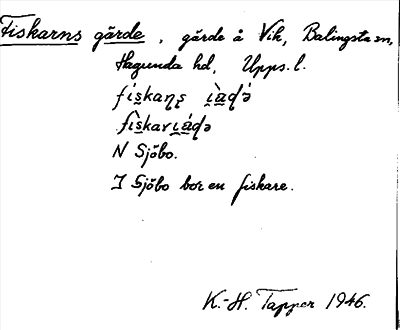 Fiskarns gärde, gärde å Vik, Balingsta sn,
Hagunda hd, Upps. l.
N Sjöbo.
I Sjöbo bor en fiskare.
K.-H. Tapper 1946.